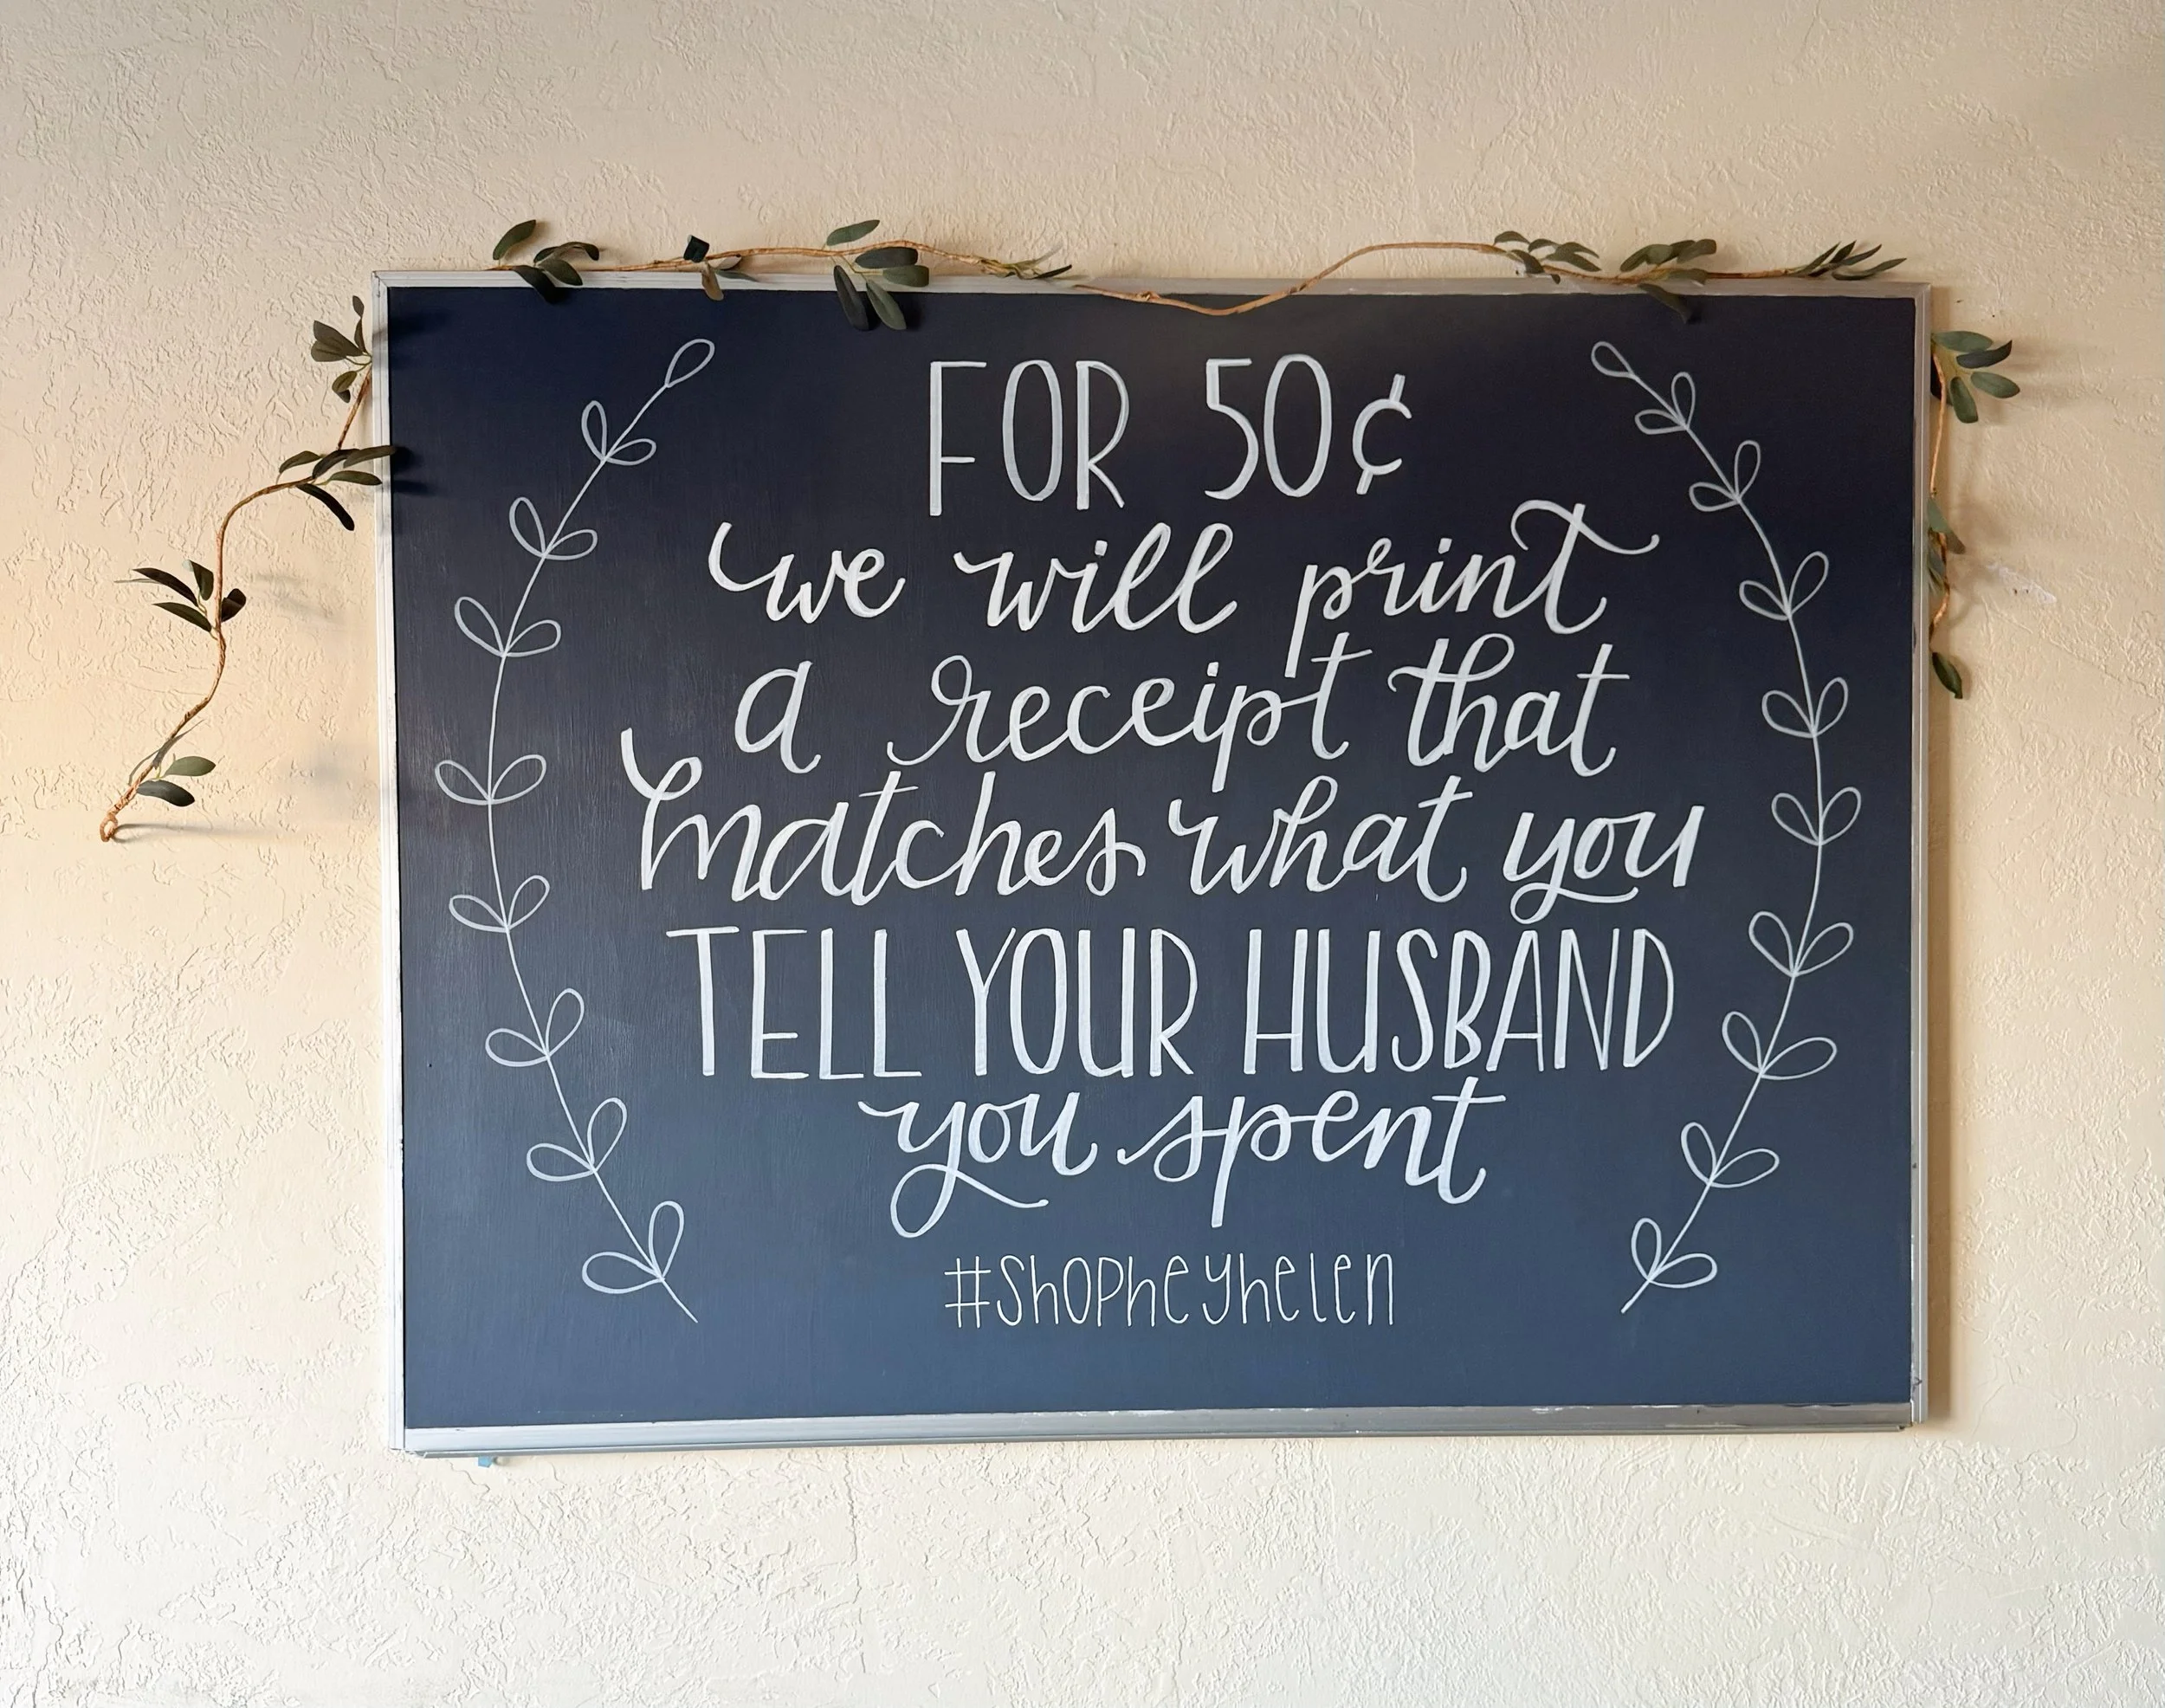 FOR 50¢
we will print
a receipt that
matches what you
TELL YOUR HUSBAND
you spent
#shopheyhelen